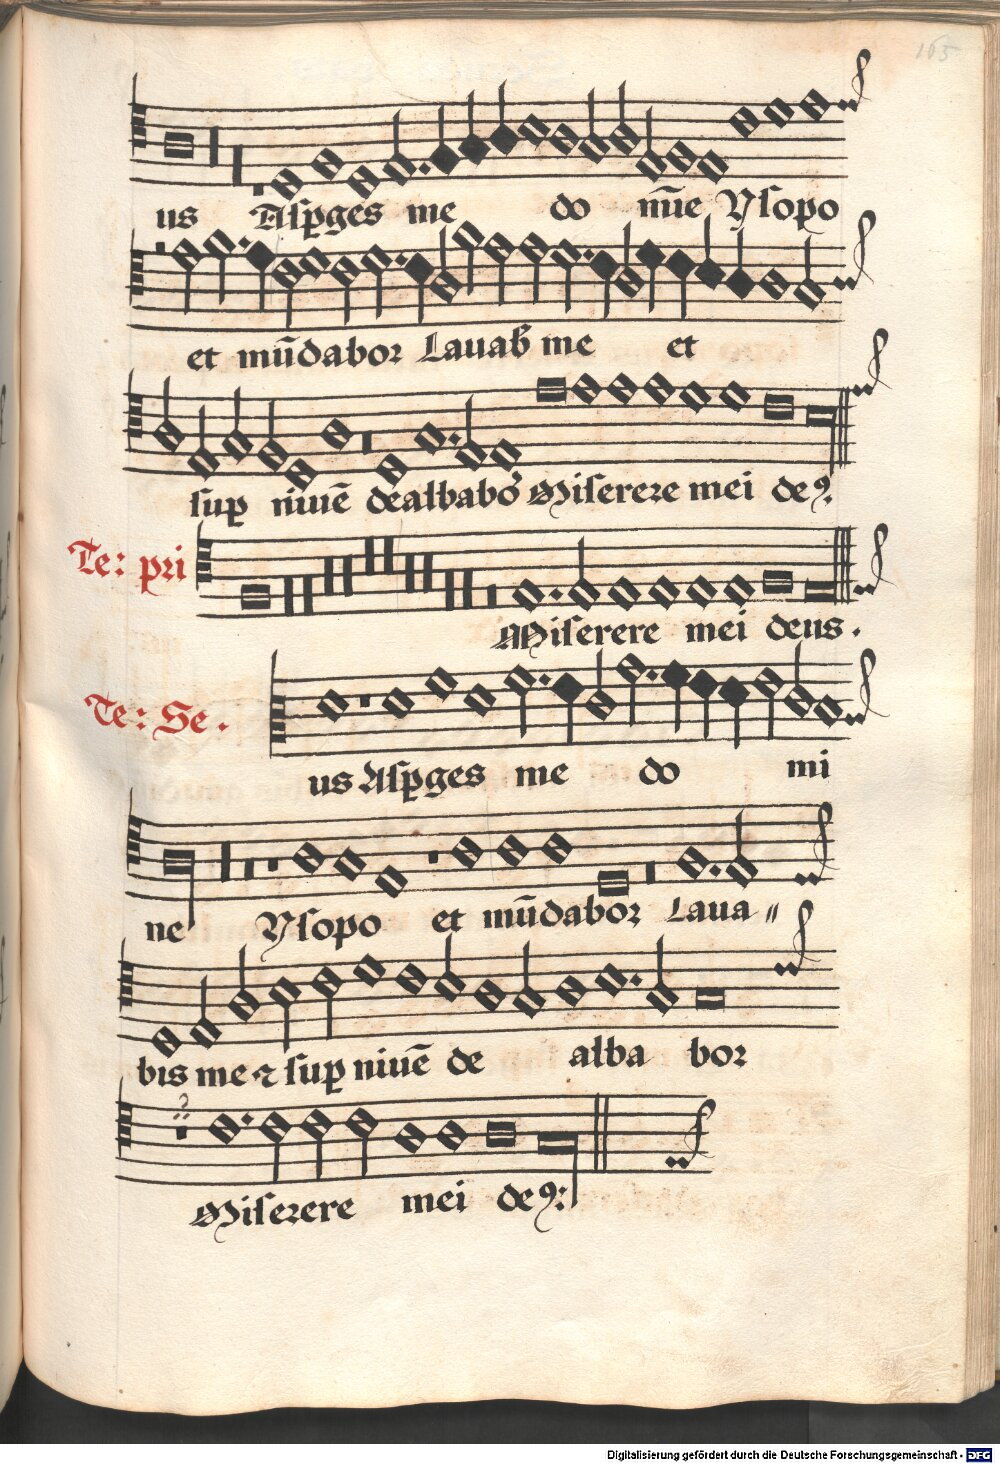 165
us Aſꝑges me do mīe Yſopo
et mūdabor Lauab̄ me et
ſuꝑ niuē dealbabo᷑ Miſerere mei deꝰ.
Te: pri
Miſerere mei deus.
Te: Se.
us Aſꝑges me do mi
ne Yſopo et mūdabor Laua〃
bis me ⁊ ſuꝑ niuē de alba bor
Miſerere mei deꝰ:
Digitalisierung gefördert durch die Deutsche Forschungsgemeinschaft - DFG